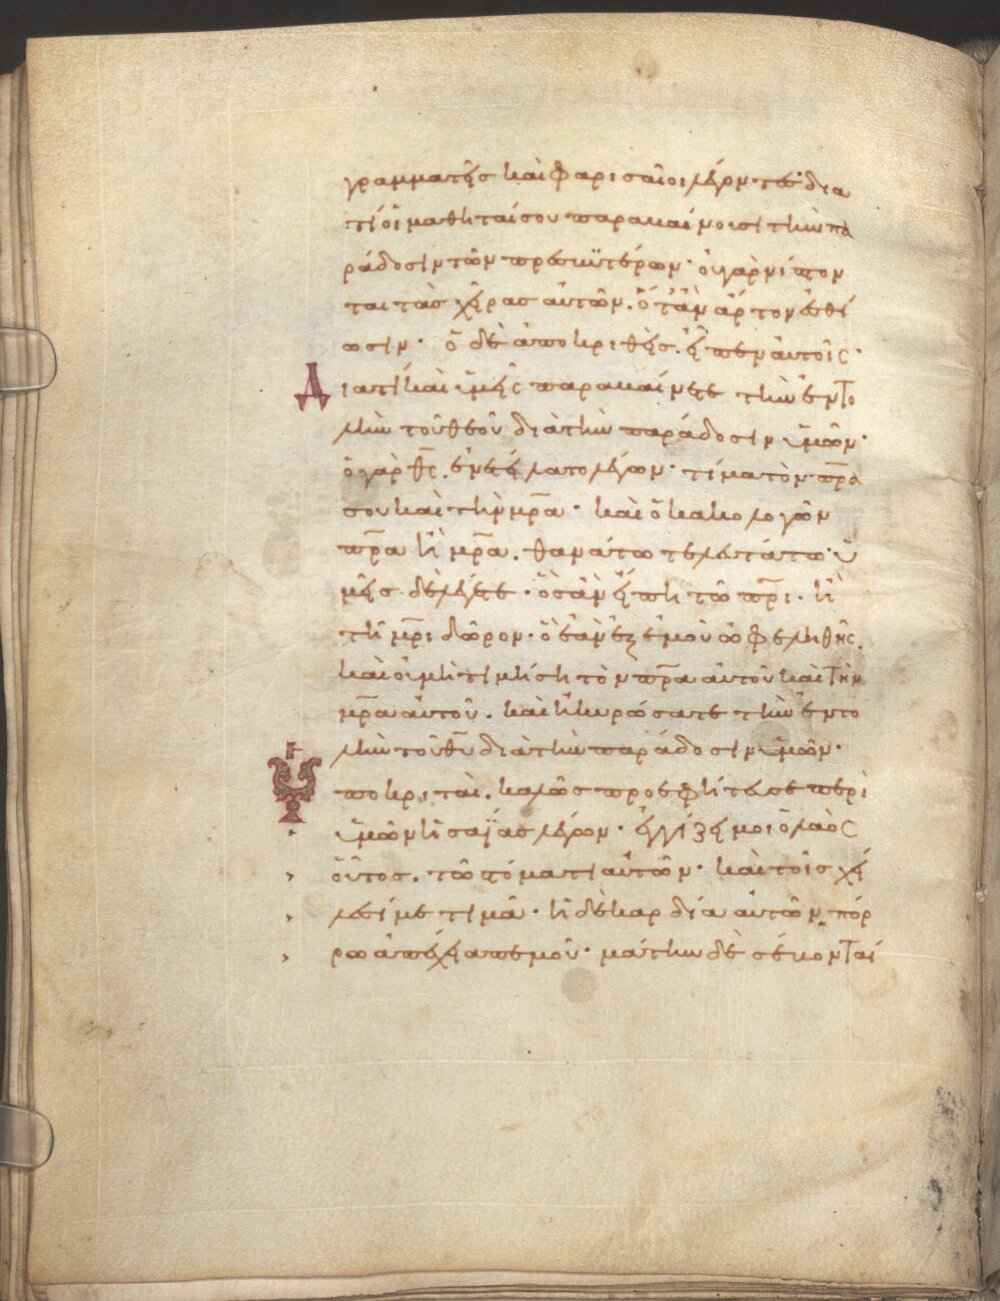 γραμματεῖς καὶ φαρισαῖοι λέγοντες· δια
τί οἱ μαθηταί σου παραβαίνουσι τὴν πα
ράδοσιν τῶν πρεσβυτέρων· οὐ γὰρ νίπτον
ται τὰς χεῖρας αὐτῶν. ὅτἂν ἄρτον ἐσθί
ωσιν· ὁ δὲ ἀποκριθεὶς. εἶπεν αὐτοῖς·
Διατί καὶ ὑμεῖς παραβαίνετε τὴν ἐντο
λὴν τοῦ θεοῦ διὰ τὴν παράδοσιν ὑμῶν·
ὁ γὰρ θς. ἐνετείλατο λέγων· τίμα τὸν πρα
σου καὶ τὴν μρα· καὶ ὁ κακολογῶν
πρα ἢ μρα. θανάτω τελευτάτω· ὑ
μεῖς δὲ λέγετε· ὃς ἂν εἴπη τῶ πρι. ἢ
τῆ μρι δῶρον· ὃ ἐὰν ἐξ ἐμοῦ ὠφεληθῆς.
καὶ οὐ μὴ τιμήση τὸν πρα αὐτοῦ καὶ τὴν
μρα αὐτοῦ. καὶ ἠκυρώσατε τὴν ἐντο
λὴν τοῦ θυ διὰ τὴν παράδοσιν ὑμῶν·
Ὑποκριταὶ. καλῶς προεφήτευσε περὶ
ὑμῶν ἡσαΐας λέγων· ἐγγίζει μοι ὁ λαὸς
οὗτος. τῶ στόματι αὐτῶν· καὶ τοῖς χεί
λεσί με τιμᾶ· ἡ δὲ καρδία αὐτῶν πόρ
ρω ἀπέχει απ εμοῦ· μάτην δὲ σέβονται